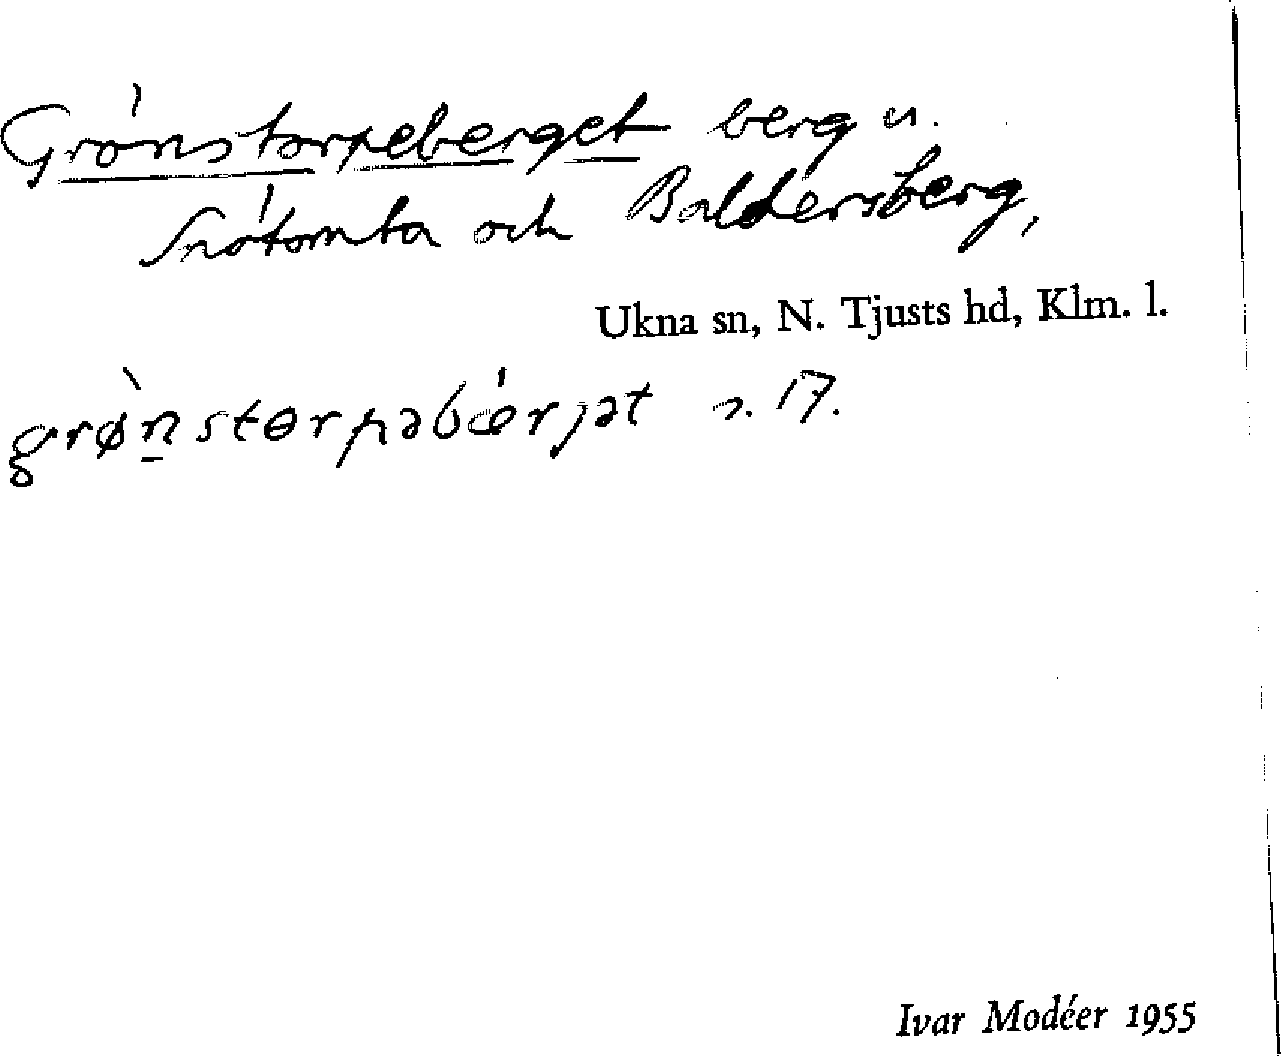 Grönstorpeberget berg u.
Snötomta och Baldersberg,
Ukna sn, N. Tjusts hd, Klm. l.
grø̀nstɵrpəbǽrjət s. 17.
Ivar Modéer 1955